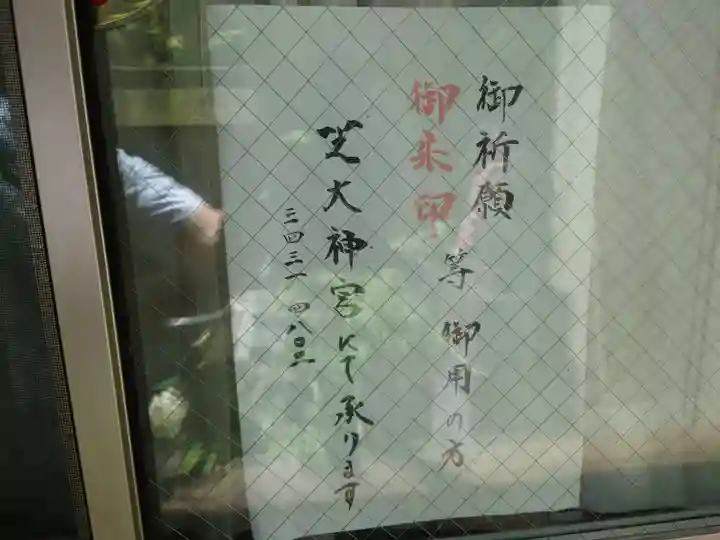 御祈願
御朱印
等 御用の方
芝大神宮にて承ります
三四三一 四八〇二